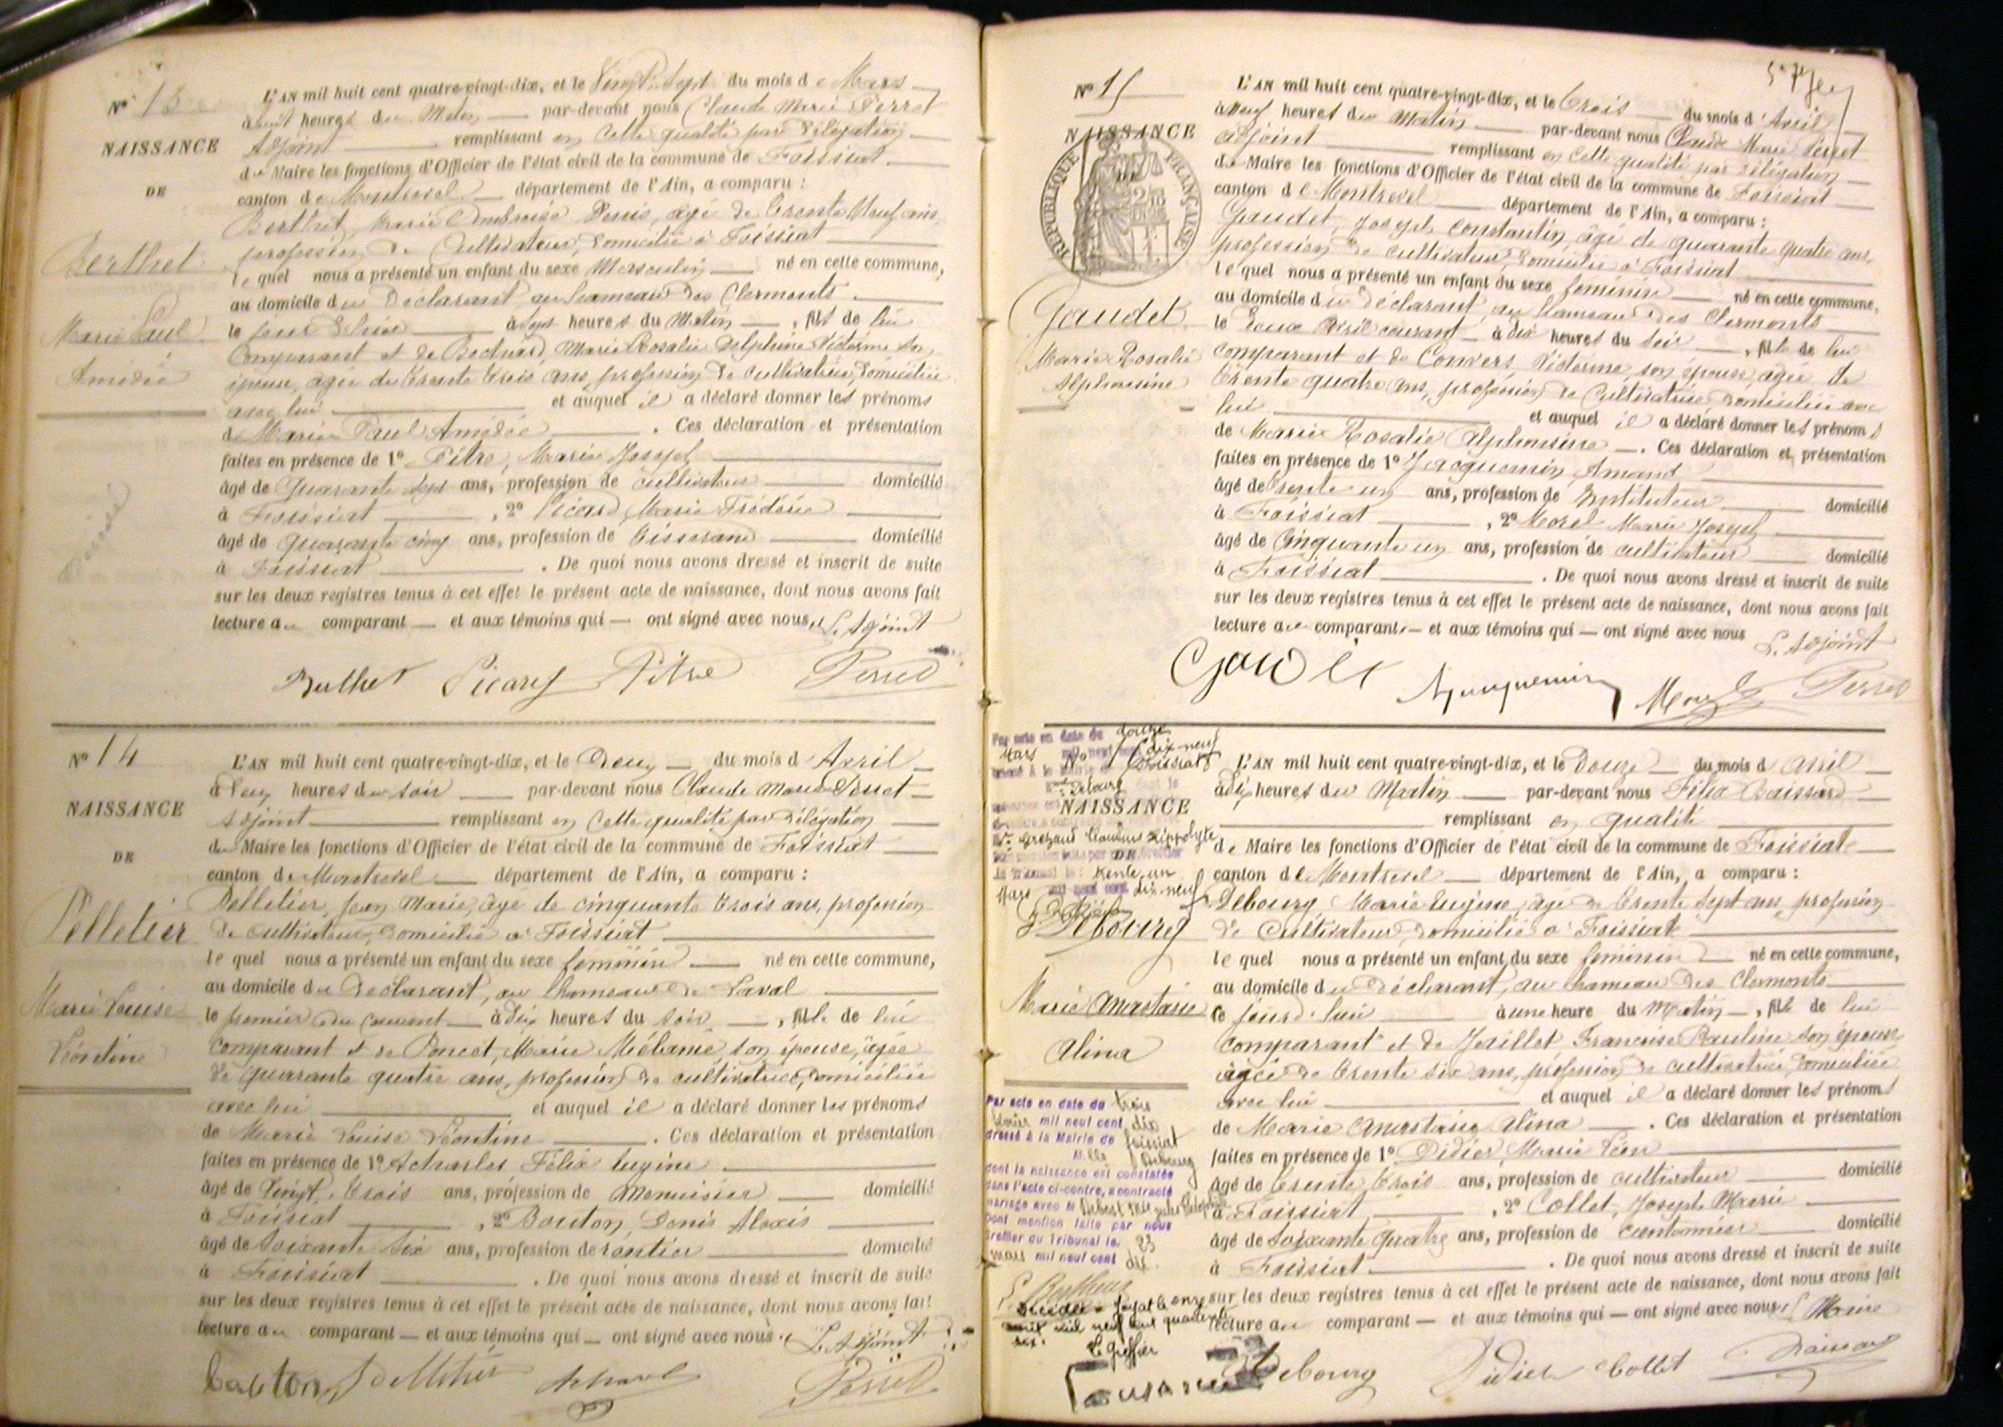 N° 13
NAISSANCE
DE
Berthet
Marie Paul
Amédée
L'AN mil huit cent quatre-vingt-dix, et le Vingt Sept du mois de Mars
à huit heures du Matin par-devant nous Claude Marie Perret
Adjoint remplissant en cette qualité par délégation
du Maire les fonctions d'Officier de l'état civil de la commune de Foissiat
canton de Montrevel département de l'Ain, a comparu :
Berthet, Marie Ambroise Denis, âgé de trente Neuf ans,
profession de Cultivateur, domicilié à Foissiat
lequel nous a présenté un enfant du sexe Masculin né en cette commune,
au domicile du Déclarant, au hameau des Clermonts
le jour d'hui à sept heures du Matin, fils de lui
Comparant et de Marie Rosalie Delphine Victorine son
épouse, âgée de trente trois ans, profession de cultivatrice, domiciliée
avec lui et auquel il a déclaré donner les prénoms
de Marie Paul Amédée. Ces déclaration et présentation
faites en présence de 1° Pitre, Marie Joseph
âgé de Quarante sept ans, profession de cultivateur domicilié
à Foissiat, 2° Picard, Marie Frédéric
âgé de quarante cinq ans, profession de tisserand domicilié
à Foissiat. De quoi nous avons dressé et inscrit de suite
sur les deux registres tenus à cet effet le présent acte de naissance, dont nous avons fait
lecture au comparant et aux témoins qui ont signé avec nous, L'Adjoint
Berthet Picard Pitre Perret
N° 14
NAISSANCE
DE
Pelletier
Marie Louise
Léontine
L'AN mil huit cent quatre-vingt-dix, et le Deux du mois d'Avril
à deux heures du soir par-devant nous Claude Marie Perret
Adjoint remplissant en cette qualité par délégation
du Maire les fonctions d'Officier de l'état civil de la commune de Foissiat
canton de Montrevel département de l'Ain, a comparu :
Pelletier, Jean Marie, âgé de cinquante trois ans, profession
de cultivateur, domicilié à Foissiat
lequel nous a présenté un enfant du sexe féminin né en cette commune,
au domicile du Déclarant, au hameau de Laval
le premier du courant à dix heures du soir, fille de lui
comparant et de Poncet, Marie Mélanie son épouse, âgée
de quarante quatre ans, profession de cultivatrice, domiciliée
avec lui et auquel il a déclaré donner les prénoms
de Marie Louise Léontine. Ces déclaration et présentation
faites en présence de 1° Félix Eugène
âgé de Vingt trois ans, profession de Menuisier domicilié
à Foissiat, 2° Bouton, Denis Alexis
âgé de soixante six ans, profession de rentier domicilié
à Foissiat. De quoi nous avons dressé et inscrit de suite
sur les deux registres tenus à cet effet le présent acte de naissance, dont nous avons fait
lecture au comparant et aux témoins qui ont signé avec nous. L'Adjoint
bouton Pelletier Perret
N° 15
NAISSANCE
DE
RÉPUBLIQUE FRANÇAISE
Gaudet
Marie Rosalie
Alphonsine
L'AN mil huit cent quatre-vingt-dix, et le trois du mois d'Avril
à Neuf heures du Matin par-devant nous Claude Marie Perret
Adjoint remplissant en cette qualité par délégation
du Maire les fonctions d'Officier de l'état civil de la commune de Foissiat
canton de Montrevel département de l'Ain, a comparu :
Gaudet, Joseph Constantin, âgé de quarante quatre ans,
profession de cultivateur, domicilié à Foissiat
lequel nous a présenté un enfant du sexe féminin né en cette commune,
au domicile du déclarant, au hameau des Clermonts
le deux Avril courant à dix heures du soir, fille de lui
comparant et de Convers, Victorine son épouse, âgée de
trente quatre ans, profession de Cultivatrice domiciliée avec
lui et auquel il a déclaré donner les prénoms
de Marie Rosalie Alphonsine. Ces déclaration et présentation
faites en présence de 1° Jacquemin, Amand
âgé de trente un ans, profession de Instituteur domicilié
à Foissiat, 2° Morel Marie Joseph
âgé de Cinquante un ans, profession de cultivateur domicilié
à Foissiat. De quoi nous avons dressé et inscrit de suite
sur les deux registres tenus à cet effet le présent acte de naissance, dont nous avons fait
lecture au comparant et aux témoins qui ont signé avec nous L'Adjoint
Gaudet Jacquemin Morel Perret
Par acte en date du douze
Mars mil neuf cent dix-neuf
Foissiat
Debourg
NAISSANCE
Claudius Hippolyte
DE
trente un
Mars mil neuf cent dix-neuf
Debourg
Marie Anastasie
Alina
Par acte en date du trois
février mil neuf cent dix
dressé à la Mairie de Foissiat
Mlle Debourg
dont la naissance est constatée
dans l'acte ci-contre, a contracté
mariage avec M
Dont mention faite par nous
Greffier du Tribunal le 23
mars mil neuf cent dix.
le onze
mil neuf cent quarante
six.
Le Greffier
L'AN mil huit cent quatre-vingt-dix, et le Douze du mois d'avril
à dix heures du Matin par-devant nous Félix Chaissard
remplissant en qualité
de Maire les fonctions d'Officier de l'état civil de la commune de Foissiat
canton de Montrevel département de l'Ain, a comparu :
Debourg, Marie Eugène, âgé de trente sept ans, profession
de Cultivateur, domicilié à Foissiat
lequel nous a présenté un enfant du sexe féminin né en cette commune,
au domicile du déclarant, au hameau des Clermonts
le jourd'hui à une heure du Matin, fille de lui
comparant et de Jaillet Françoise Pauline son épouse,
âgée de trente six ans, profession de cultivatrice, domiciliée
avec lui et auquel il a déclaré donner les prénoms
de Marie Anastasie Alina. Ces déclaration et présentation
faites en présence de 1° Didier, Marie Léon
âgé de trente trois ans, profession de cultivateur domicilié
à Foissiat, 2° Collet, Joseph Marie
âgé de soixante quatre ans, profession de cantonnier domicilié
à Foissiat. De quoi nous avons dressé et inscrit de suite
sur les deux registres tenus à cet effet le présent acte de naissance, dont nous avons fait
lecture au comparant et aux témoins qui ont signé avec nous Maire
Debourg Didier Collet